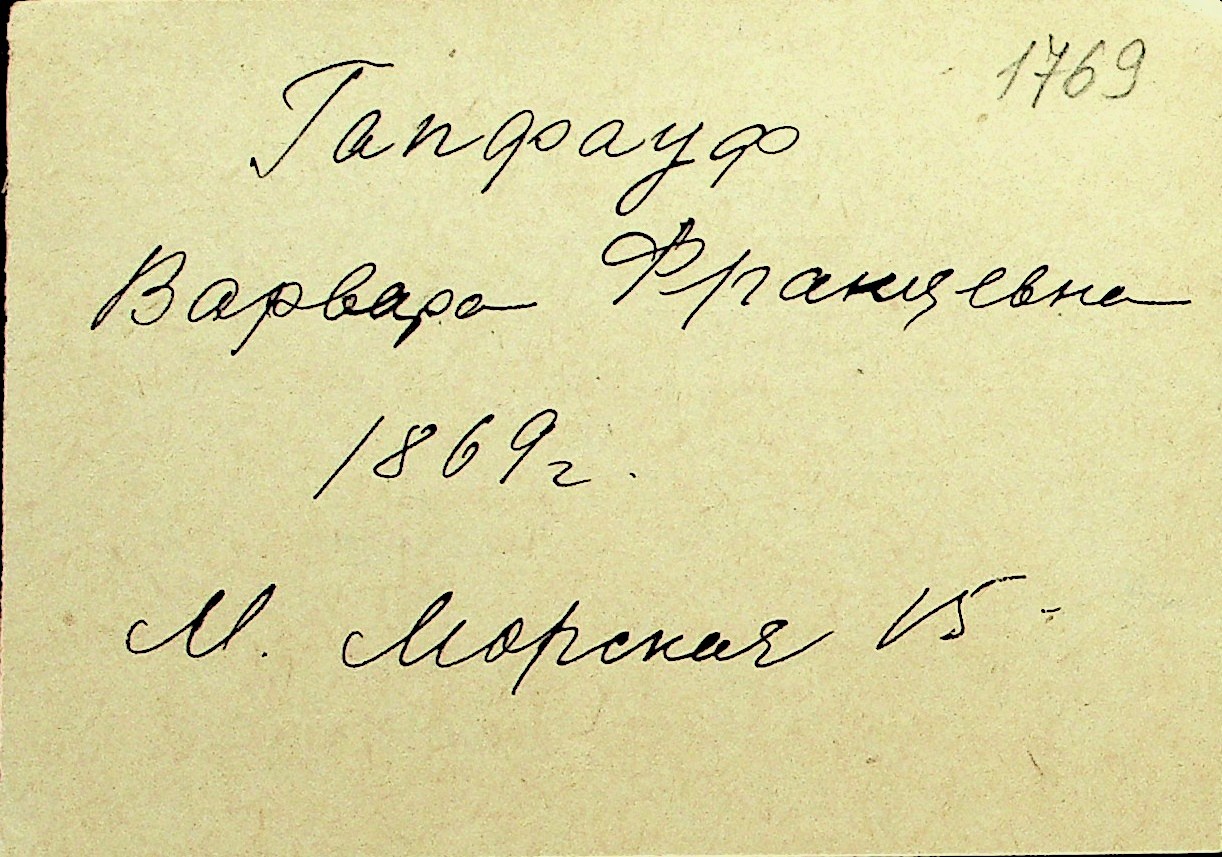 1769
Гапфауф
Варвара Францевна
1869г.
М. Морская 15-